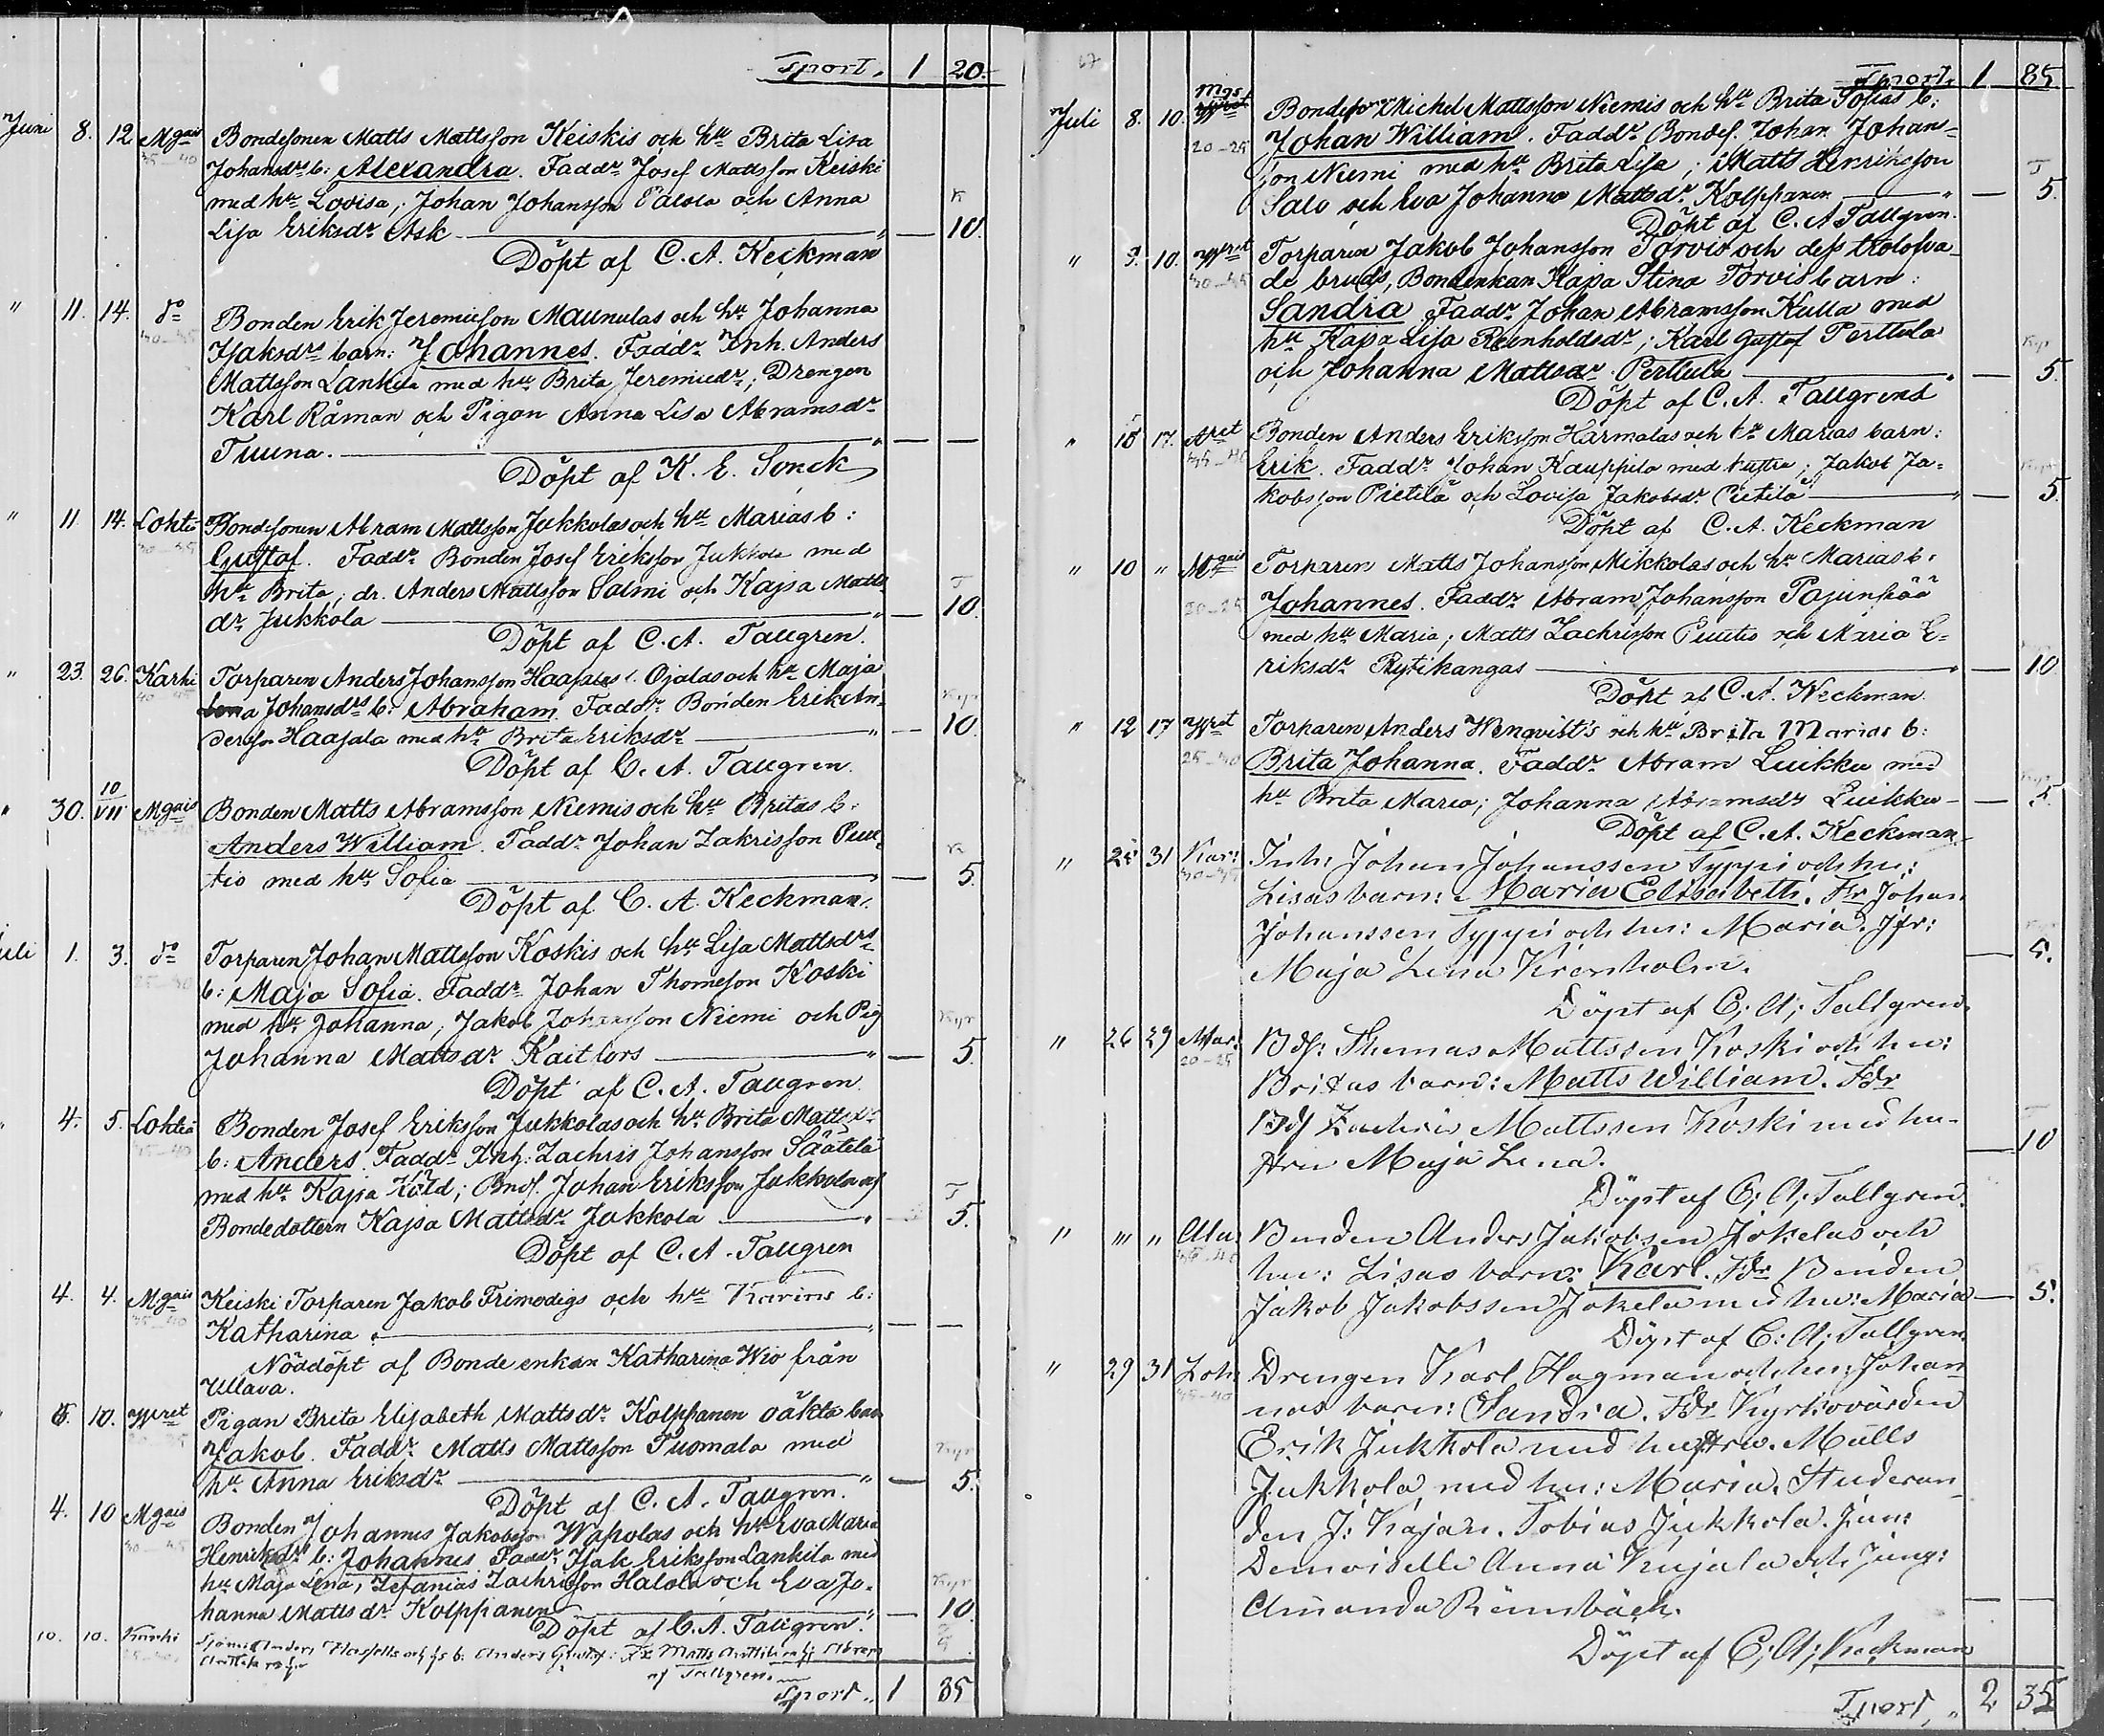 Tsport. 1 20.
Juni 8. 12 Mgais Bondesonen Matts Mattsson Keiskis och hu Brita Lisa
35-40 Johansdr b: Alexandra. Faddr Josef Mattsson Keiski
med hu Lovisa, Johan Johansson Ealola och Anna K
Lisa Eriksdr Ask " — 10.
Döpt af C. A. Keckman
" 11. 14. do Bonden Erik Jeremiesson Maunulas och hu Johanna
30-35 Isaksdrs barn: Johannes. Faddr Inh. Anders
Mattsson Lankila med hu Brita Jeremiedr; Drengen
Karl Råman och Pigan Anna Lisa Abramsdr
Tuuna. " — —
Döpt af K. E. Sonck
" 11 14. Lohto Bondesonen Abram Mattsson Jukkolas och hu Marias b:
30-35 Gustaf. Faddr Bonden Josef Eriksson Jukkola med
hu Brita; dr. Anders Mattsson Salmi och Kajsa Matts T
dr Jukkola " — 10.
Döpt af C. A. Tallgren.
" 23. 26. Karhi Torparen Anders Johansson Haapalas l. Ojalas och hu Maja
40 Lena Johansdrs b: Abraham. Faddr Bonden Erik An-
dersson Haapala med hu Brita Eriksdr " — 10.
Döpt af C. A. Tallgren.
" 30. 10/VII Mgais Bonden Matts Abramsson Niemis och hu Britas b.
Anders William. Faddr Johan Zakrisson Puu- K
tio med hu Sofia — 5.
Döpt af C. A. Keckman.
Juli 1. 3. do Torparen Johan Mattsson Koskis och hu Lisa Mattsdrs
25-30 b: Maja Sofia. Faddr Johan Thomesson Koski
med hu Johanna, Jakob Johansson Niemi och Pig
Johanna Mattsdr Kaitfors " — 5.
Döpt af C. A. Tallgren.
" 4. 5. Lohtea Bonden Josef Eriksson Jukkolas och hu Brita Mattsdr
35-40 b: Anders. Faddr Inh: Zachris Johansson Säätelä
med hu Kajsa Kåld; Bnds. Johan Eriksson Jukkola och T
Bondedottern Kajsa Mattsdr Jukkola " — 5.
Döpt af C. A. Tallgren
4. 4. Mgais Keiski Torparen Jakob Frimodigs och hu Karins b:
35-40 Katharina. " — —
Nöddöpt af Bonde enkan Katharina Wio från
Ullava.
" 5. 10. Wret Pigan Brita Elisabeth Mattsdr Kolppanen oäkta barn
Jakob. Faddr Matts Mattsson Tuomala med
hu Anna Eriksdr " — 5.
Döpt af C. A. Tallgren.
4. 10 Mgais Bonden Johannes Jakobsson Wapolas och hu Eva Maria
30-35 Henriksdr b: Johannes. Faddr Isak Eriksson Lankila med
hu Maja Lena, Zefanias Zachrisson Halola och Eva Jo-
hanna Mattsdr Kolppanen " — 10.
Döpt af C. A. Tallgren.
10. 10. Karhi Anders b. Anders Gustaf: Fr Matts Anttila Abram
Anttila af Tallgren.
Tsport. 1 85
67 Tsport. 1 85
Juli 8. 10. Mgs Bondesonen Michel Mattsson Niemis och hu Brita Sofias b:
20-25 Johan William. Faddr Bondes. Johan Johans-
son Niemi med hu Brita Lisa; Matts Henriksson T
Salo och Eva Johanna Mattsdr Kolppanen " — 5.
Döpt af C. A Tallgren.
" 9. 10. Wret Torparen Jakob Johansson Torvis och dess trolofva-
30-35 de bruds, Bondenkan Kajsa Stina Torvis barn:
Sandra Faddr Johan Abramsson Kulla med
hu Kajsa Lisa Reinholdsdr; Karl Gustaf Perttula Kyr
och Johanna Mattsdr Perttula " — 5.
Döpt af C. A. Tallgrens
" 15 17. Aret Bonden Anders Eriksson Härmälas och hu Marias barn:
35-40 Erik. Faddr Johan Kauppila med hustru; Jakob Ja-
kobsson Pietilä och Lovisa Jakobsdr Pietilä " — 5.
Döpt af C. A. Keckman
" 10 " Mgais Torparen Matts Johansson Mikkolas och hu Marias b:
20-25 Johannes. Faddr Abram Johansson Pajunpää
med hu Maria; Matts Zachrisson Puutio och Maria E-
riksdr Rytikangas " — 10
Döpt af C. A. Keckman.
" 12 17 Wret Torparen Anders Wenqvist's och hu Brita Marias b:
25-30 Brita Johanna. Faddr Abram Luikku med
hu Brita Maria; Johanna Abramsdr Luikku — — 5.
Döpt af C. A. Keckman
" 25 31 Kar: Inh: Johan Johansson Typpi och hu:
30-35 Lisas barn: Maria Elisabeth. Fdr Johan
Johansson Typpi och hu: Maria. Jfr:
Maja Lena Kronholm. — 5.
Döpt af C: A: Tallgren.
" 26 29 Mar: Bds: Thomas Mattsson Koski och hu:
20-25 Britas barn: Matts William. Fdr
Bds Zachris Mattsson Koski med hu-
stru Maja Lena. — 10
Döpt af C: A: Tallgren.
" " " Ala Bonden Anders Jakobsson Jokelas och
35-40 hu: Lisas barn: Karl. Fdr Bonden
Jakob Jakobsson Jokela med hu: Maria — 5.
Döpt af C: A: Tallgren
" 29 31 Loh: Drengen Karl Hagman och hu: Johan-
35-40 nas barn: Sandra. Fdr Kyrkovärden
Erik Jukkola med hustru. Matts
Jukkola med hu: Maria. Studeran-
den J: Kajan. Tobias Jukkola. Jun:
Demoiselle Anna Kujala och Jung:
Amanda Rönnbäck. — —
Döpt af C: A: Keckman
Tsport, " 2 35